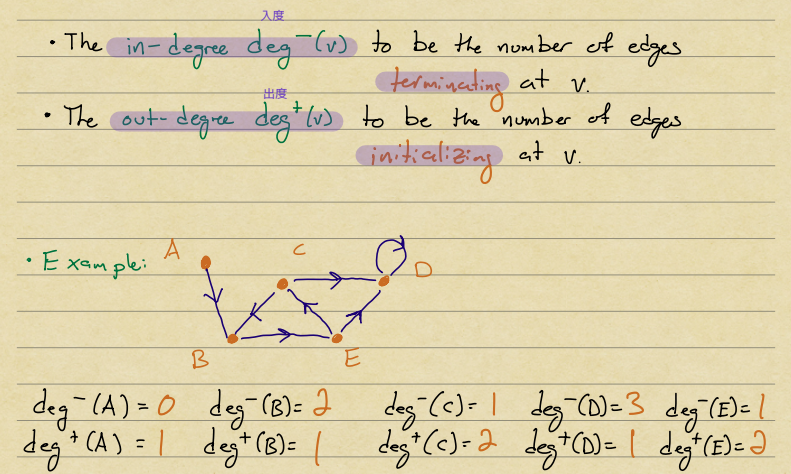 入度
• The in-degree deg⁻(v) to be the number of edges
terminating at v.
出度
• The out-degree deg⁺(v) to be the number of edges
initializing at v.
• Example:
A
C
D
B
E
deg⁻(A) = 0 deg⁻(B) = 2 deg⁻(C) = 1 deg⁻(D) = 3 deg⁻(E) = 1
deg⁺(A) = 1 deg⁺(B) = 1 deg⁺(C) = 2 deg⁺(D) = 1 deg⁺(E) = 2